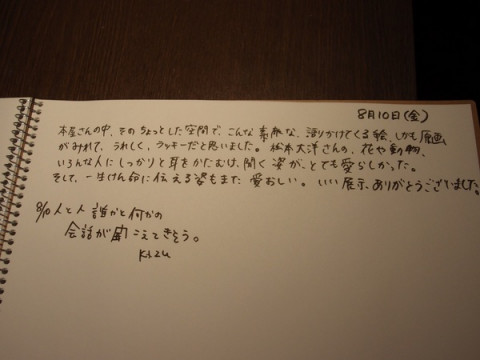 8月10日(金)
本屋さんの中、そのちょっとした空間で、こんな素敵な、語りかけてくる絵、しかも原画
がみれて、うれしく、ラッキーだと思いました。松本大洋さんの、花や動物、
いろんな人にしっかりと耳をかたむけ、聞く姿が、とても愛らしかった。
そして、一生けん命に伝える姿もまた愛おしい。いい展示、ありがとうございました。
8/10 人と人 誰かと何かの
会話が聞こえてきそう。